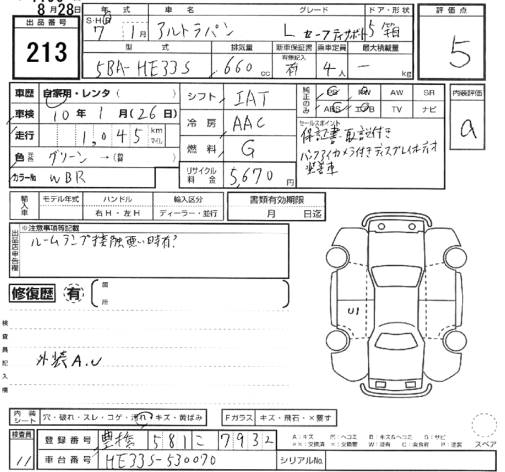 8月28日
出品番号
213
年式 車名 グレード ドア・形状
S・H・R 7年 1月 アルトラパン L セーフティサポート 5箱
評価点
5
型式 排気量 新車保証書 乗車定員 最大積載量
5BA-HE33S 660cc 有 4人 — kg
車歴 自家用・レンタ
車検 10年1月(26日)
走行 1,045 km マイル
色 グリーン→(替)
カラーNo WBR
シフト IAT
冷房 AAC
燃料 G
リサイクル料金 5,670円
純正のみ PS PW AW SR
ABS エアB TV ナビ
セールスポイント
保証書・取説付き
バックアイカメラ付きディスプレイオーディオ
装着車
内装評価
a
輸入車 モデル年式 ハンドル 輸入区分
右H・左H ディーラー・並行
書類有効期限
月 日迄
出品店申告欄
※注意事項等記載
ルームランプ接触悪い時有?
修復歴 有 箇所
U1
検査員記入欄
外装A.U
内装シート 穴・破れ・スレ・コゲ・汚れ・キズ・黄ばみ
Fガラス キズ・飛石・×要す
検査員 11
登録番号 豊橋 581 こ 7932
車台番号 HE33S-530070
シリアルNo.
スペア